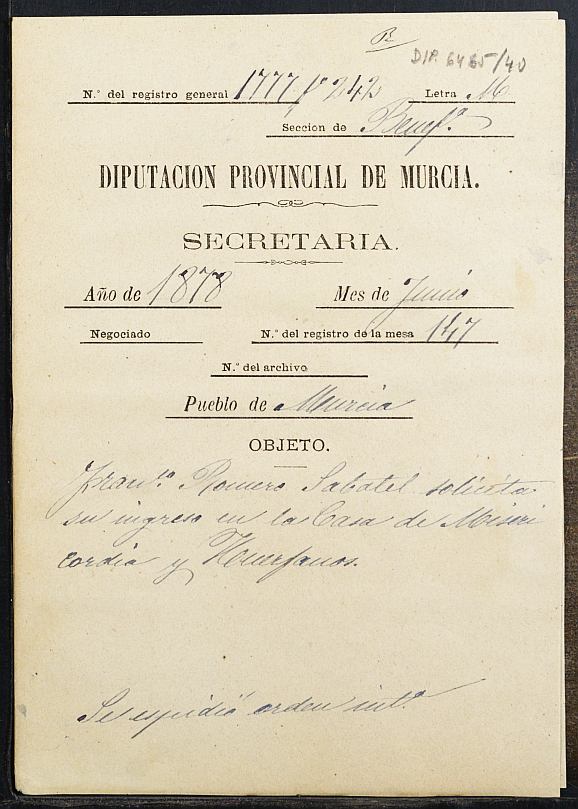 R
DIP. 6465/40
N.º del registro general 1777 fº 242 Letra M
Seccion de Benefª
DIPUTACION PROVINCIAL DE MURCIA.
SECRETARIA.
Año de 1878 Mes de Junio
Negociado N.º del registro de la mesa 147
N.º del archivo
Pueblo de Murcia
OBJETO.
Franco. Romero Sabatel solicita
su ingreso en la Casa de Miseri
cordia y Huerfanos.
Se espidió orden intª